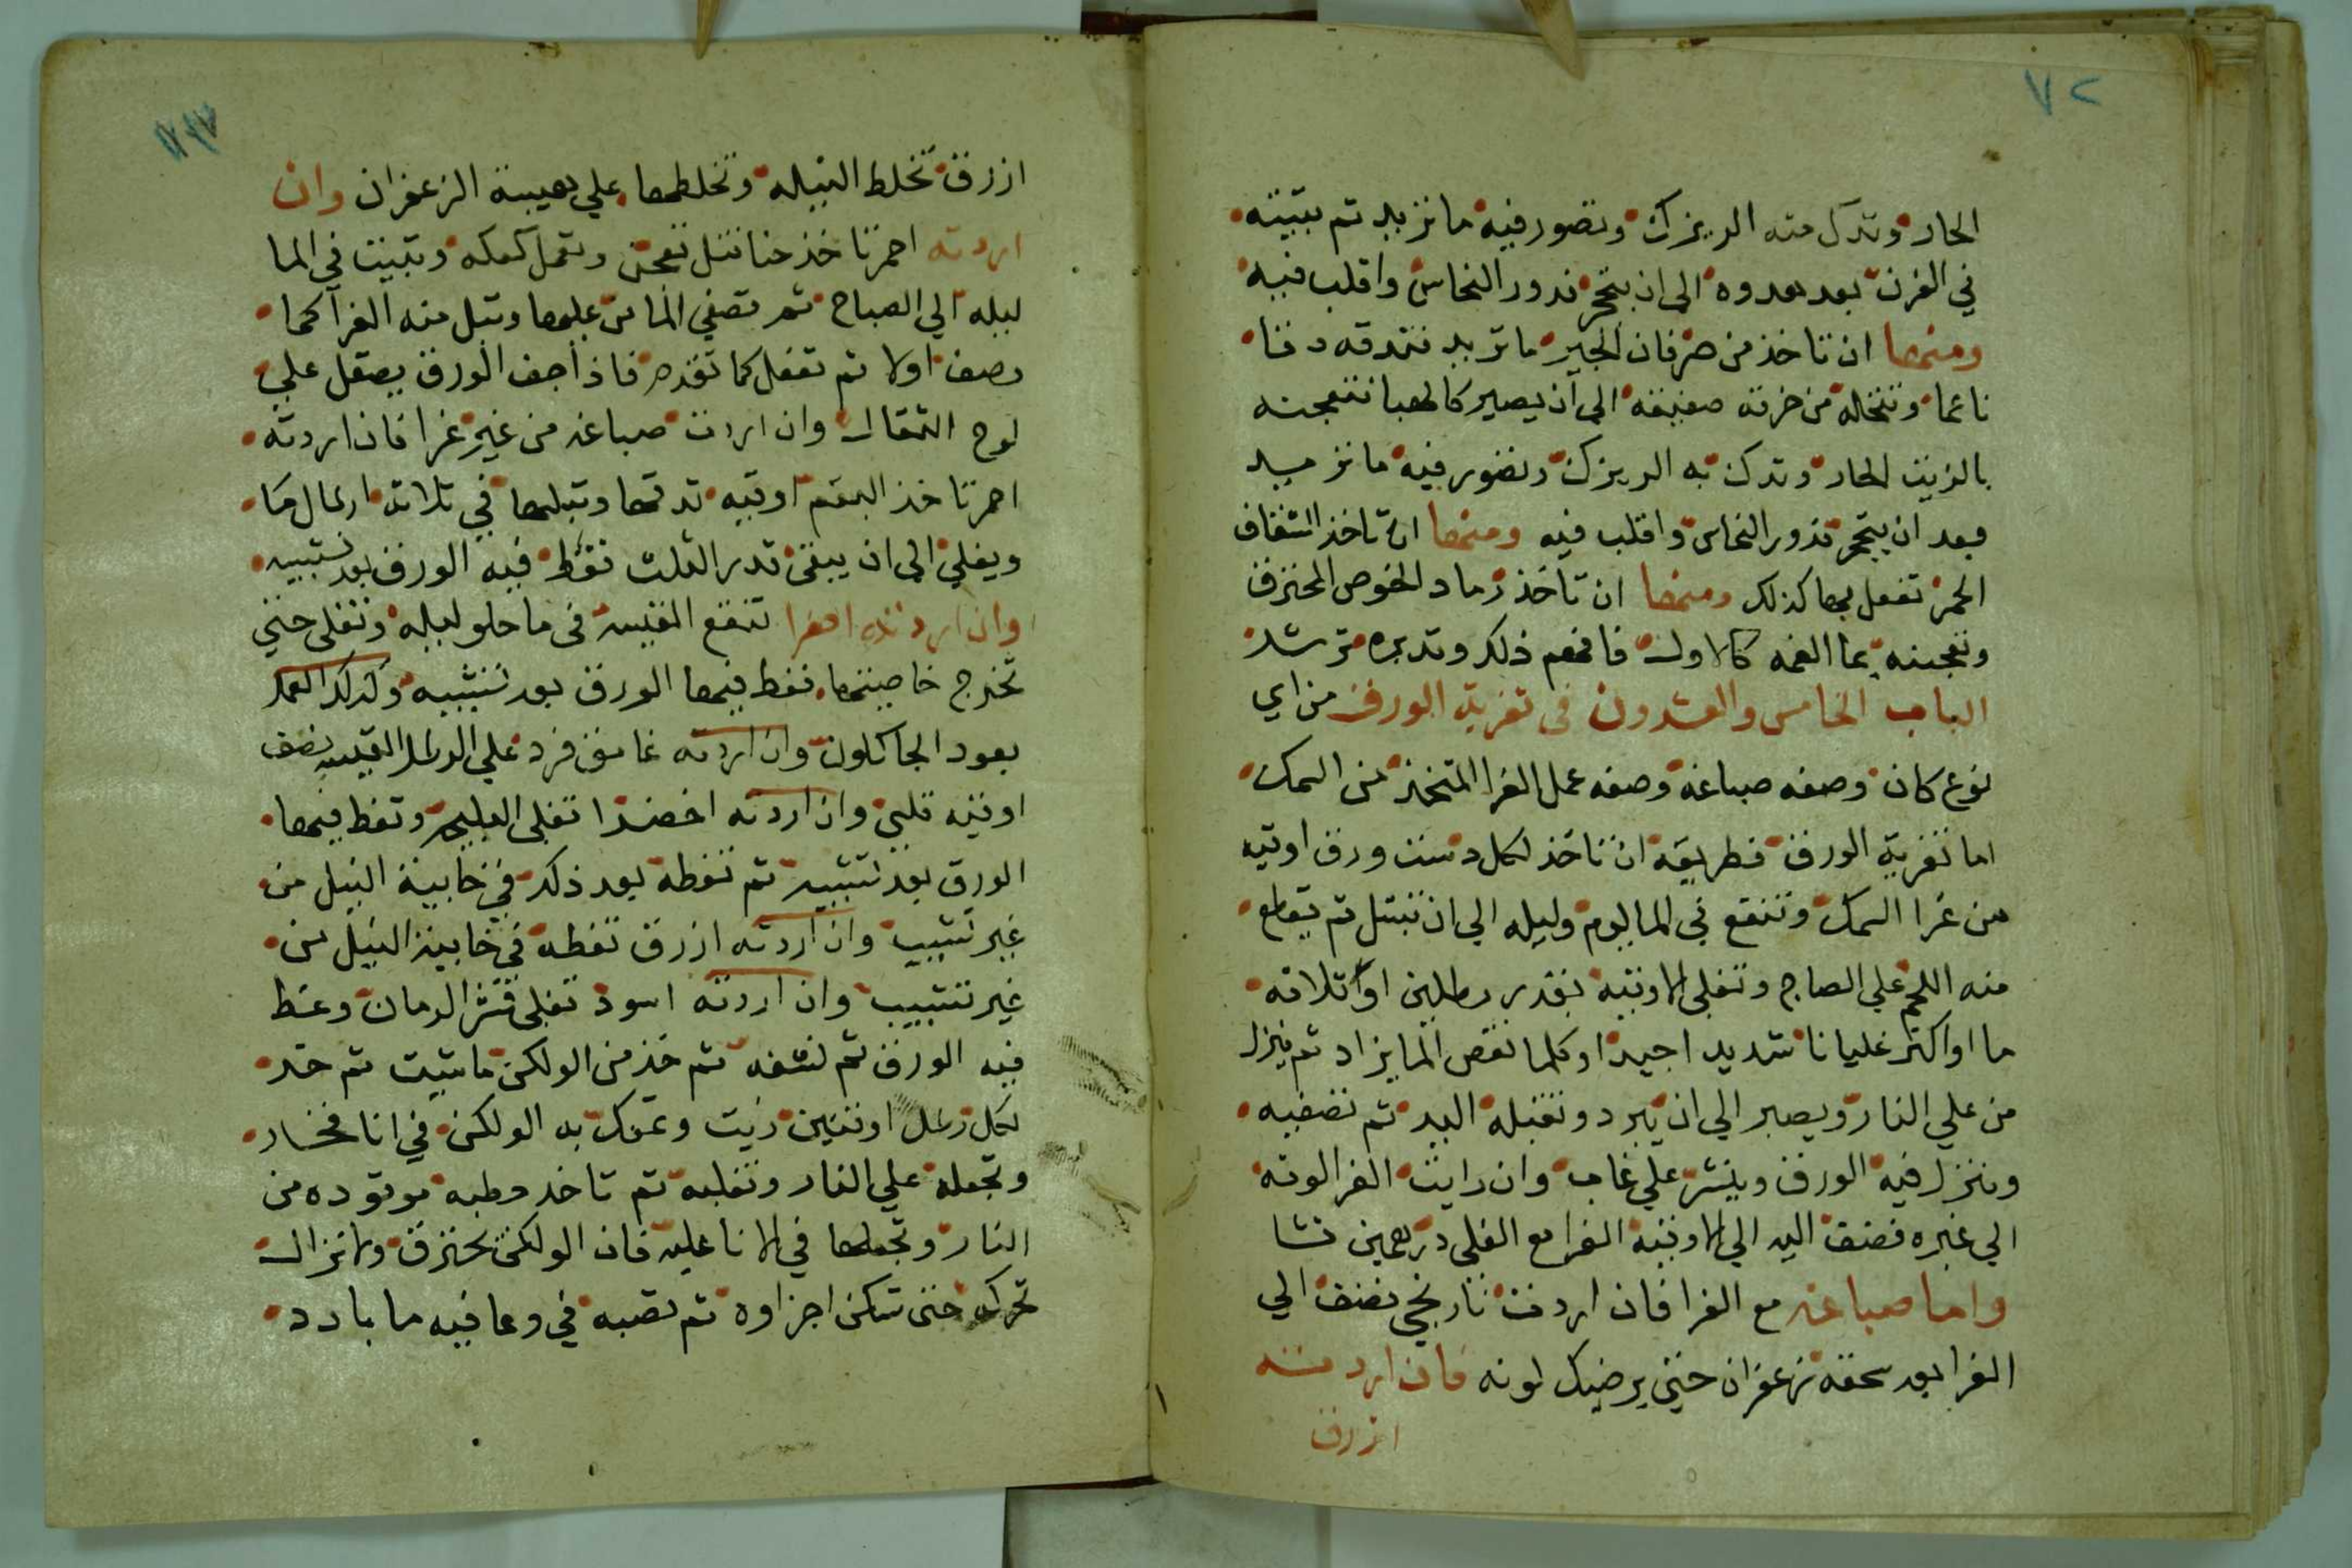 ٧٢
الحار وتدك منه الريزك وتصور فيه ما تريد ثم تبيته
في الفرن بعد هدوه الى ان يتحجر تدور النحاس واقلب فيه
ومنها ان تاخذ من صرفان الجير ما تريد فتدقه دقا
ناعما وتنخله من خرقه صفيقه الى ان يصير كالهبا فتعجنه
بالزيت الحار وتدك به الريزك وتصور فيه ما تريد
وبعد ان يتحجر تدور النحاس واقلب فيه ومنها ان تاخذ الشقاف
الحمر تفعل بها كذلك ومنها ان تاخذ رماد الخوص المحترق
وتعجنه بما الفمه كالاول فافهم ذلك وتدبره ترشد
الباب الخامس والعشرون في تغرية الورق من اي
نوع كان وصفه صباغه وصفه عمل الغرا المتخذ من السمك
اما تغرية الورق فطريقه ان تاخذ لكل دست ورق اوقيه
من غرا السمك وتنقع في الما يوم وليله الي ان تبتل ثم يقطع
منه اللحم علي الصاج وتغلى الاوقيه بقدر رطلين او ثلاثه
ما او اكثر غليانا شديدا جيدا وكلما نقص الما يزاد ثم ينزل
من علي النار ويصبر الي ان يبرد وتقبله اليد ثم تصفيه
وينزل فيه الورق وينشر علي غاب وان رايت الغرا لونه
الي غبره فضف اليه الي الاوقيه الغرا مع الغلى درهمين نشا
واما صباغه مع الغرا فان اردت نارنجي تضف الي
الغرا بعد سحقه زعفران حتى يرضيك لونه فان اردته
ازرق
ازرق تخلط النيله وتخلطها علي هيبة الزعفران وان
اردته احمر تاخذ حنا تنل تعجن وتعمل كعكه وتبيت في الما
ليله الي الصباح ثم تصفي الما من عليها وتبل منه الغرا كما
وصف اولا ثم تفعل كما تقدم فاذا جف الورق يصقل علي
لوح الثقال وان اردت صباغه من غير غرا فان اردته
احمر تاخذ البقم اوقيه تدقها وتبلها في ثلاثه ارطال ما
ويغلي الى ان يبقى قدر الثلث تغط فيه الورق بعد تشبيبه
وان اردته اصفرا تنقع القيسه في ما حلو ليله وتغلى حتى
تخرج خاصيتها تغط فيها الورق بعد تشبيبه وكذلك العمل
بعود الجاكلون وان اردته غامق فزد علي الرطل القيسه نصف
اوقيه قلي وان اردته اخضرا تغلى البليحه وتغط فيها
الورق بعد تشبيبه ثم تغطه بعد ذلك في خابية النيل من
غير تشبيب وان اردته ازرق تغطه في خابية النيل من
غير تشبيب وان اردته اسود تغلى قشر الرمان وعط
فيه الورق ثم لنشفه ثم خذ من الولكن ما شيت ثم خذ
لكل رطل اوقتين زيت وتمعك به الولكن في انا فخار
وتجعله علي النار وتغليه ثم تاخذ حطبه موقوده من
النار وتجعلها في الانا عليه فان الولكن يحترق ولا تزال
تحركه حتى تسكن اجزاوه ثم تصبه في وعا فيه ما بارد